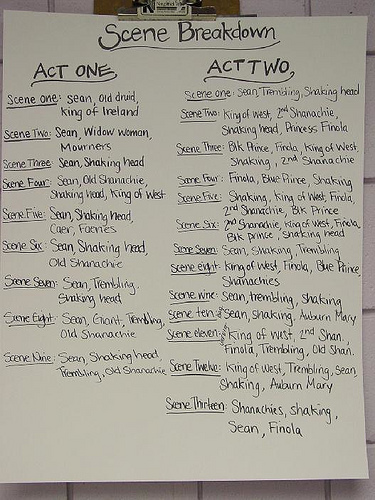 Scene Breakdown
ACT ONE
Scene one: Sean, Old druid,
King of Ireland
Scene Two: Sean, Widow Woman,
Mourners
Scene Three: Sean, Shaking head
Scene Four: Sean, Old Shanachie,
Shaking head, King of West
Scene Five: Sean, Shaking head,
Caer, Faeries
Scene Six: Sean Shaking head,
Old Shanachie
Scene Seven: Sean, Trembling,
Shaking head
Scene Eight: Sean, Giant, Trembling,
Old Shanachie
Scene Nine: Sean, Shaking head,
Trembling, Old Shanachie
ACT TWO
Scene one: Sean, Trembling, Shaking head
Scene Two: King of West, 2nd Shanachie,
Shaking head, Princess Finola
Scene Three: Blk Prince, Finola, King of West,
Shaking, 2nd Shanachie
Scene Four: Finola, Blue Prince, Shaking
Scene Five: Shaking, King of West, Finola,
2nd Shanachie, Blk Prince
Scene Six: 2nd Shanachie, King of West, Finola,
Blk Prince, Shaking head
Scene Seven: Sean, Shaking, Trembling
Scene eight: King of West, Finola, Blue Prince,
Shanachies
Scene nine: Sean, trembling, Shaking
Scene ten: Sean, Shaking, Auburn Mary
Scene eleven: King of West, 2nd Shan.
Finola, Trembling, Old Shan.
Scene Twelve: King of West, Trembling, Sean,
Shaking, Auburn Mary
Scene Thirteen: Shanachies, Shaking,
Sean, Finola